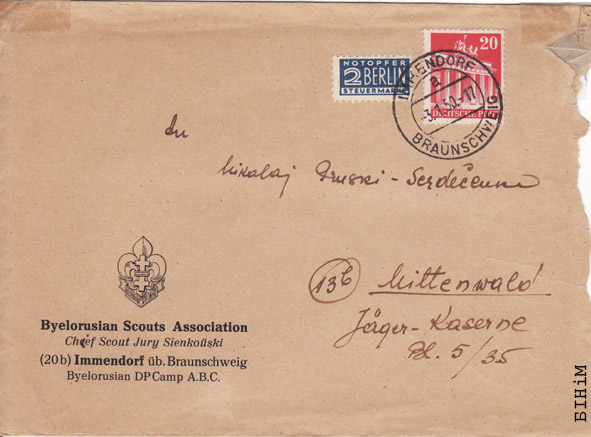 NOTOPFER
2 BERLIN
STEUERMARKE
20
DEUTSCHE POST
IMMENDORF
a
50.-17
BRAUNSCHWEIG
An
Mikolaj
13b Mittenwald
Jäger-Kaserne
Bl. 5/35
Byelorusian Scouts Association
Chief Scout Jury Sienkoŭski
(20b) Immendorf üb. Braunschweig
Byelorusian DP Camp A.B.C.
БІНіМ